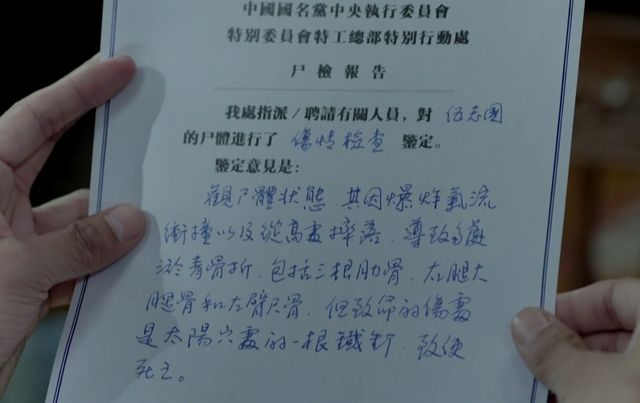 中國國名黨中央執行委員會
特別委員會特工總部特別行動處
尸檢報告
我處指派/聘請有關人員，對 伍志國
的尸體進行了 傷情檢查 鑒定。
鑒定意見是：
觀尸體狀態，其因爆炸氣流
衝撞以及從高處摔落，導致多處
淤青骨折，包括三根肋骨，左腿大
腿骨和左臂尺骨，但致命的傷處
是太陽穴處的一根鐵釘，致使
死亡。